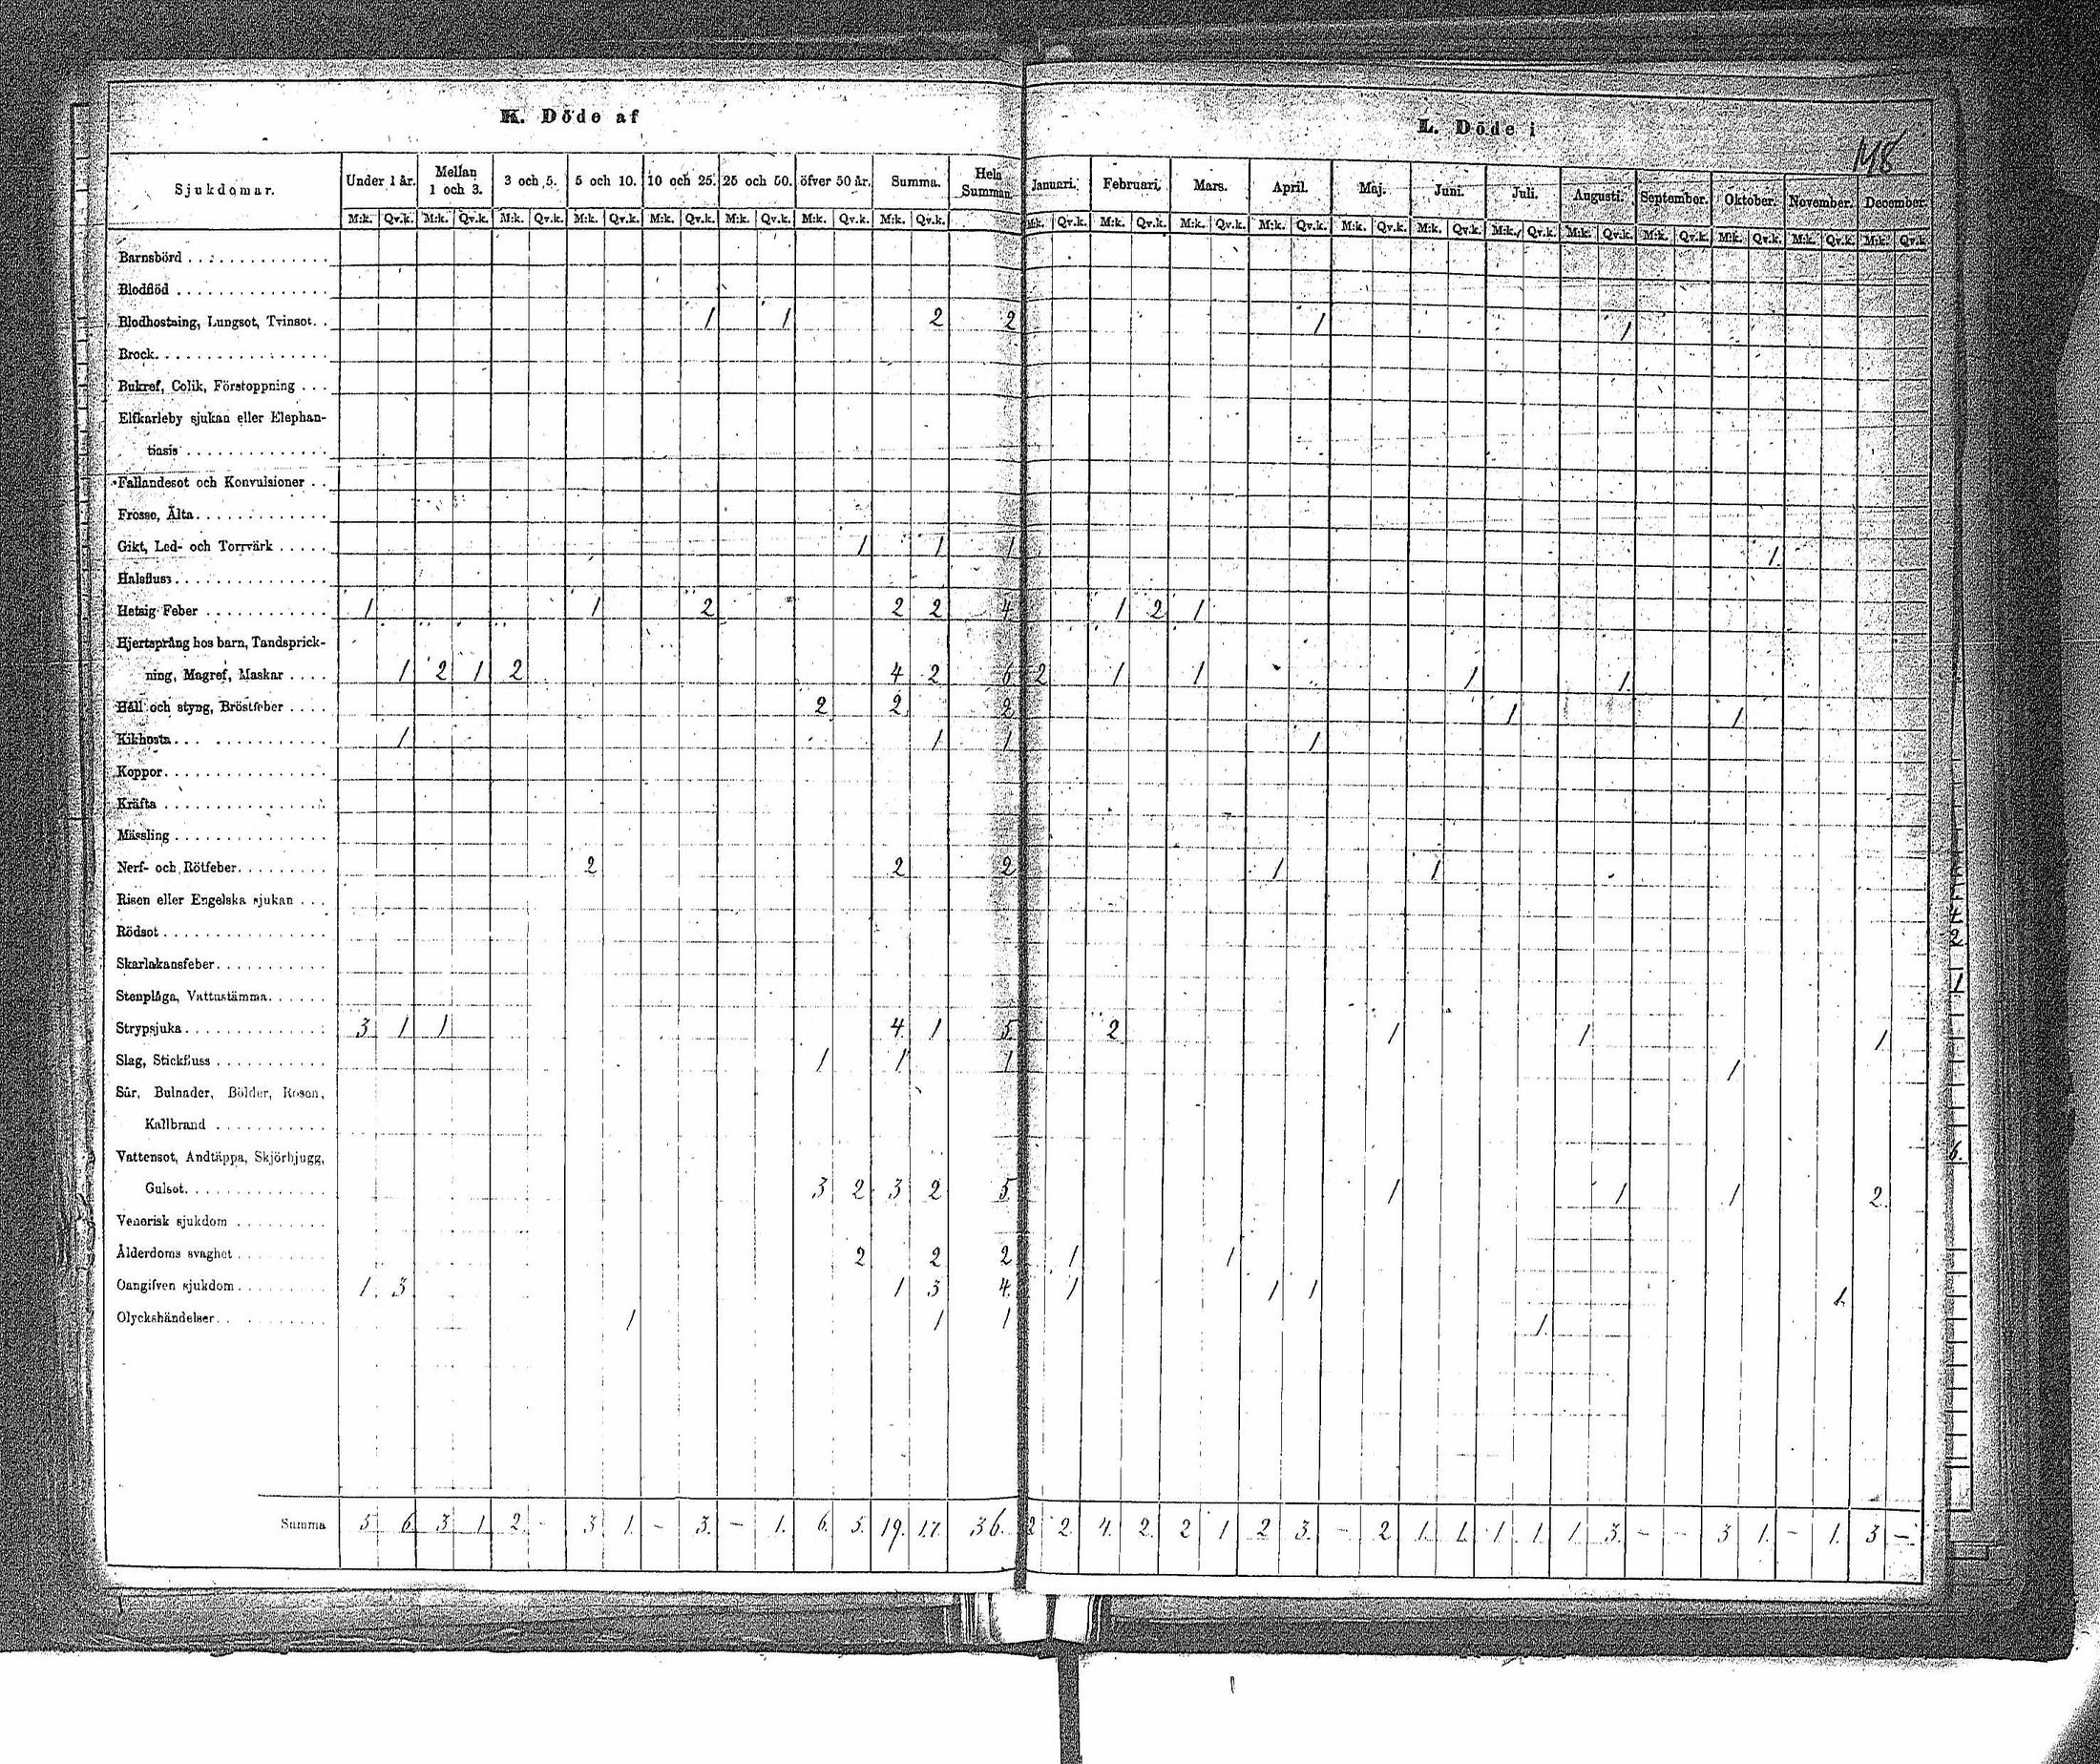 K. Döde af
L. Döde i
148
Sjukdomar. Under 1 år. Mellan 1 och 3. 3 och 5. 5 och 10. 10 och 25. 25 och 50. öfver 50 år. Summa. Hela Summan. Januari. Februari. Mars. April. Maj. Juni. Juli. Augusti. September. Oktober. November. December.
M:k. Qv.k. M:k. Qv.k. M:k. Qv.k. M:k. Qv.k. M:k. Qv.k. M:k. Qv.k. M:k. Qv.k. M:k. Qv.k. M:k. Qv.k. M:k. Qv.k. M:k. Qv.k. M:k. Qv.k. M:k. Qv.k. M:k. Qv.k. M:k. Qv.k. M:k. Qv.k. M:k. Qv.k. M:k. Qv.k. M:k. Qv.k. M:k. Qv.k.
Barnsbörd
Blodflöd
Blodhostning, Lungsot, Tvinsot. 1 1 2 2 1 1
Brock
Bukref, Colik, Förstoppning
Elfkarleby sjukan eller Elephan-
tiasis
Fallandesot och Konvulsioner
Frosse, Älta
Gikt, Led- och Torrvärk 1 1 1 1
Halsfluss
Hetsig Feber 1 1 2 2 2 4 1 2 1
Hjertsprång hos barn, Tandsprick-
ning, Magref, Maskar 1 2 1 2 4 2 6 2 1 1 1 1
Håll och styng, Bröstfeber 2 2 2 1 1
Kikhosta 1 1 1 1
Koppor
Kräfta
Mässling
Nerf- och Rötfeber 2 2 2 1 1
Risen eller Engelska sjukan
Rödsot
Skarlakansfeber
Stenplåga, Vattustämma
Strypsjuka 3 1 1 4 1 5 2 1 1 1
Slag, Stickfluss 1 1 1 1
Sår, Bulnader, Bölder, Rosen,
Kallbrand
Vattensot, Andtäppa, Skjörbjugg,
Gulsot 3 2 3 2 5 1 1 1 2
Venerisk sjukdom
Ålderdoms svaghet 2 2 2 1 1
Oangifven sjukdom 1 3 1 3 4 1 1 1 1
Olyckshändelser 1 1 1 1
Summa 5 6 3 1 2 - 3 1 - 3 - 1 6 5 19 17 36 2 2 4 2 2 1 2 3 - 2 1 1 1 1 1 3 - - 3 1 - 1 3 -